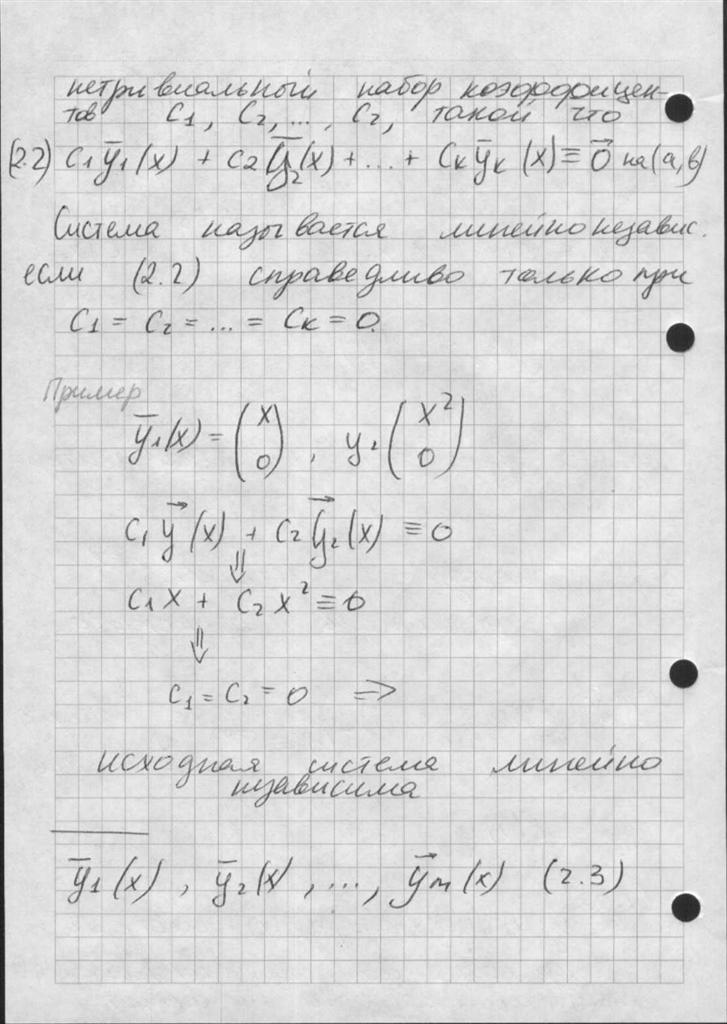 нетривиальный набор коэффициен-
тов C₁, C₂, ..., C₂, такой что
(2.2) C₁ȳ₁(x) + C₂ȳ₂(x) + ... + Cₖȳₖ(x) ≡ 0⃗ на (a, b)
Система называется линейно независ.
если (2.2) справедливо только при
C₁ = C₂ = ... = Cₖ = 0.
Пример
ȳ₁(x) = (x 0), y₂ (x² 0)
C₁y⃗(x) + C₂y⃗₂(x) ≡ 0
⇓
C₁x + C₂x² ≡ 0
⇓
C₁ = C₂ = 0 ⇒
исходная система линейно
независима
ȳ₁(x), ȳ₂(x), ..., y⃗ₘ(x) (2.3)